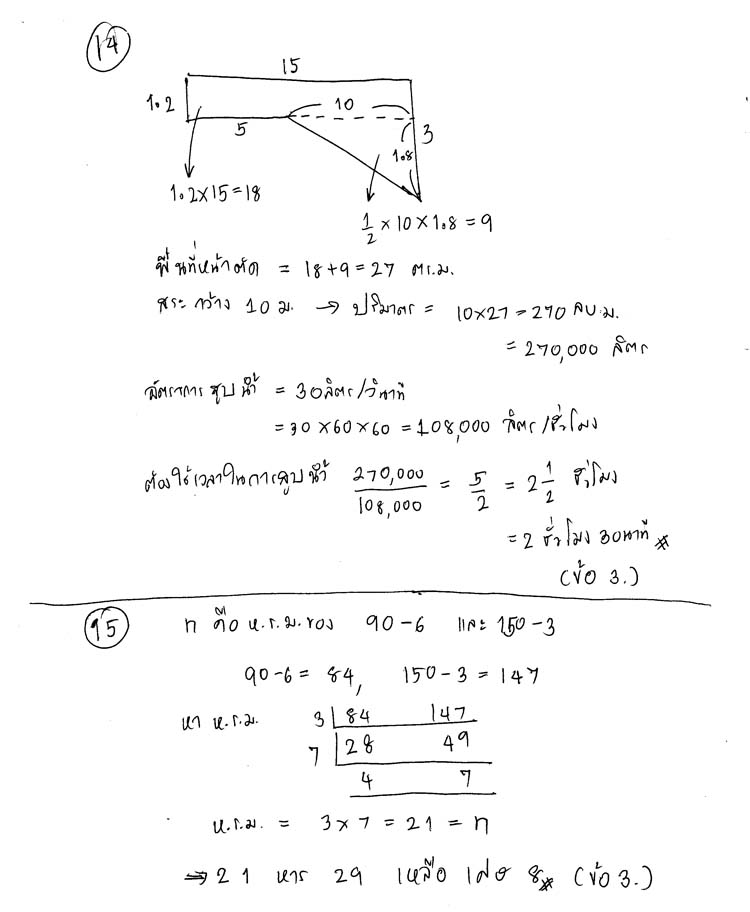 14
15
1.2
10
5
3
1.8
1.2×15=18
1/2 × 10 × 1.8 = 9
พื้นที่หน้าตัด = 18+9 = 27 ตร.ม.
สระกว้าง 10 ม. → ปริมาตร = 10×27 = 270 ลบ.ม.
= 270,000 ลิตร
อัตราการสูบน้ำ = 30 ลิตร/วินาที
= 30 × 60 × 60 = 108,000 ลิตร/ชั่วโมง
ต้องใช้เวลาในการสูบน้ำ 270,000/108,000 = 5/2 = 2 1/2 ชั่วโมง
= 2 ชั่วโมง 30 นาที *
(ข้อ 3.)
15 n คือ ห.ร.ม. ของ 90-6 และ 150-3
90-6 = 84, 150-3 = 147
หา ห.ร.ม. 3 84 147
7 28 49
4 7
ห.ร.ม. = 3×7 = 21 = n
⇒ 21 หาร 29 เหลือเศษ 8* (ข้อ 3.)